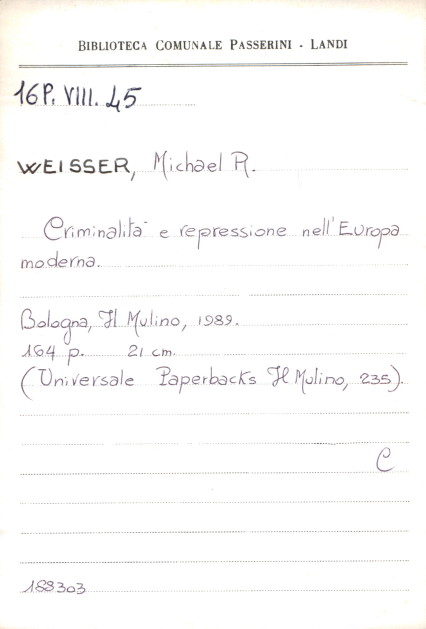 BIBLIOTECA COMUNALE PASSERINI - LANDI
16P. VIII. 45
WEISSER, Michael R.
Criminalità e repressione nell'Europa
moderna.
Bologna, Il Mulino, 1989.
164 p. 21 cm.
(Universale Paperbacks Il Mulino, 235).
C
188303